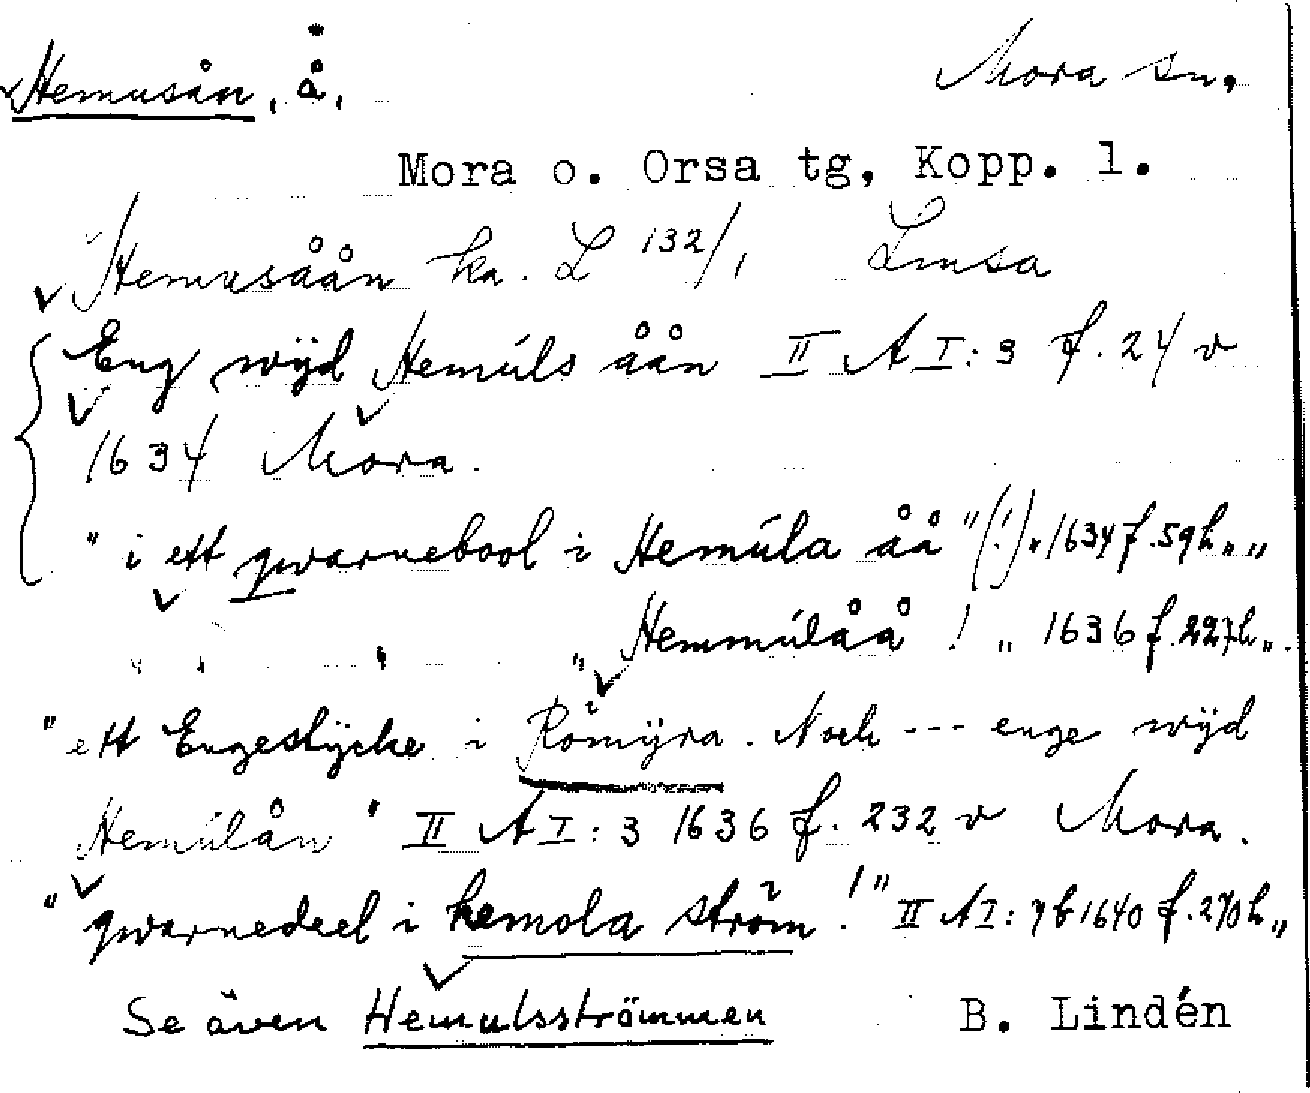 Hemusån, å.
Mora sn.
Mora o. Orsa tg, Kopp. l.
Hemusåån ka. L 132/1 Lmsa
Eng wÿd Hemúls åån II A I:3 f. 24 v
1634 Mora.
" i ett qwarnebool i Hemúla åå " (!) " 1634 f. 59 h " "
" " " " Hemmúlåå ! " 1636 f. 227 h "
" ett Engestÿcke i Römÿra. Noch --- enge wÿd
Hemúlån " II A I:3 1636 f. 232 v Mora.
" qwarnedeel i hemola ström ! " II A I: 7b 1640 f. 270 h "
Se även Hemulsströmmen
B. Lindén